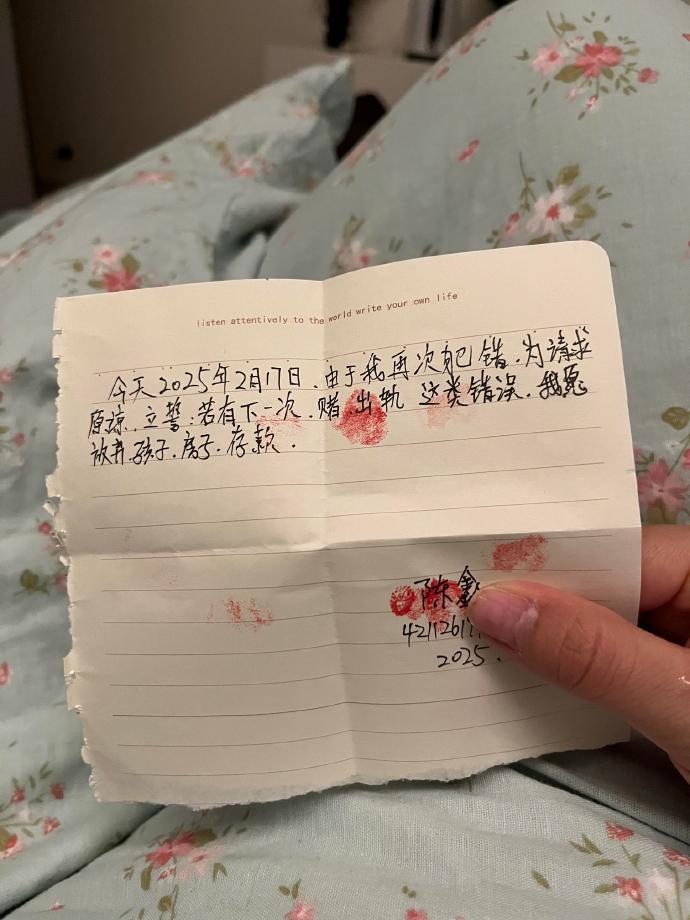 listen attentively to the world write your own life
今天2025年2月17日、由于我再次犯错、为请求
原谅、立誓:若有下一次、赌、出轨 这类错误、我愿
放弃、孩子、房子、存款.
陈鑫
42112619
2025.